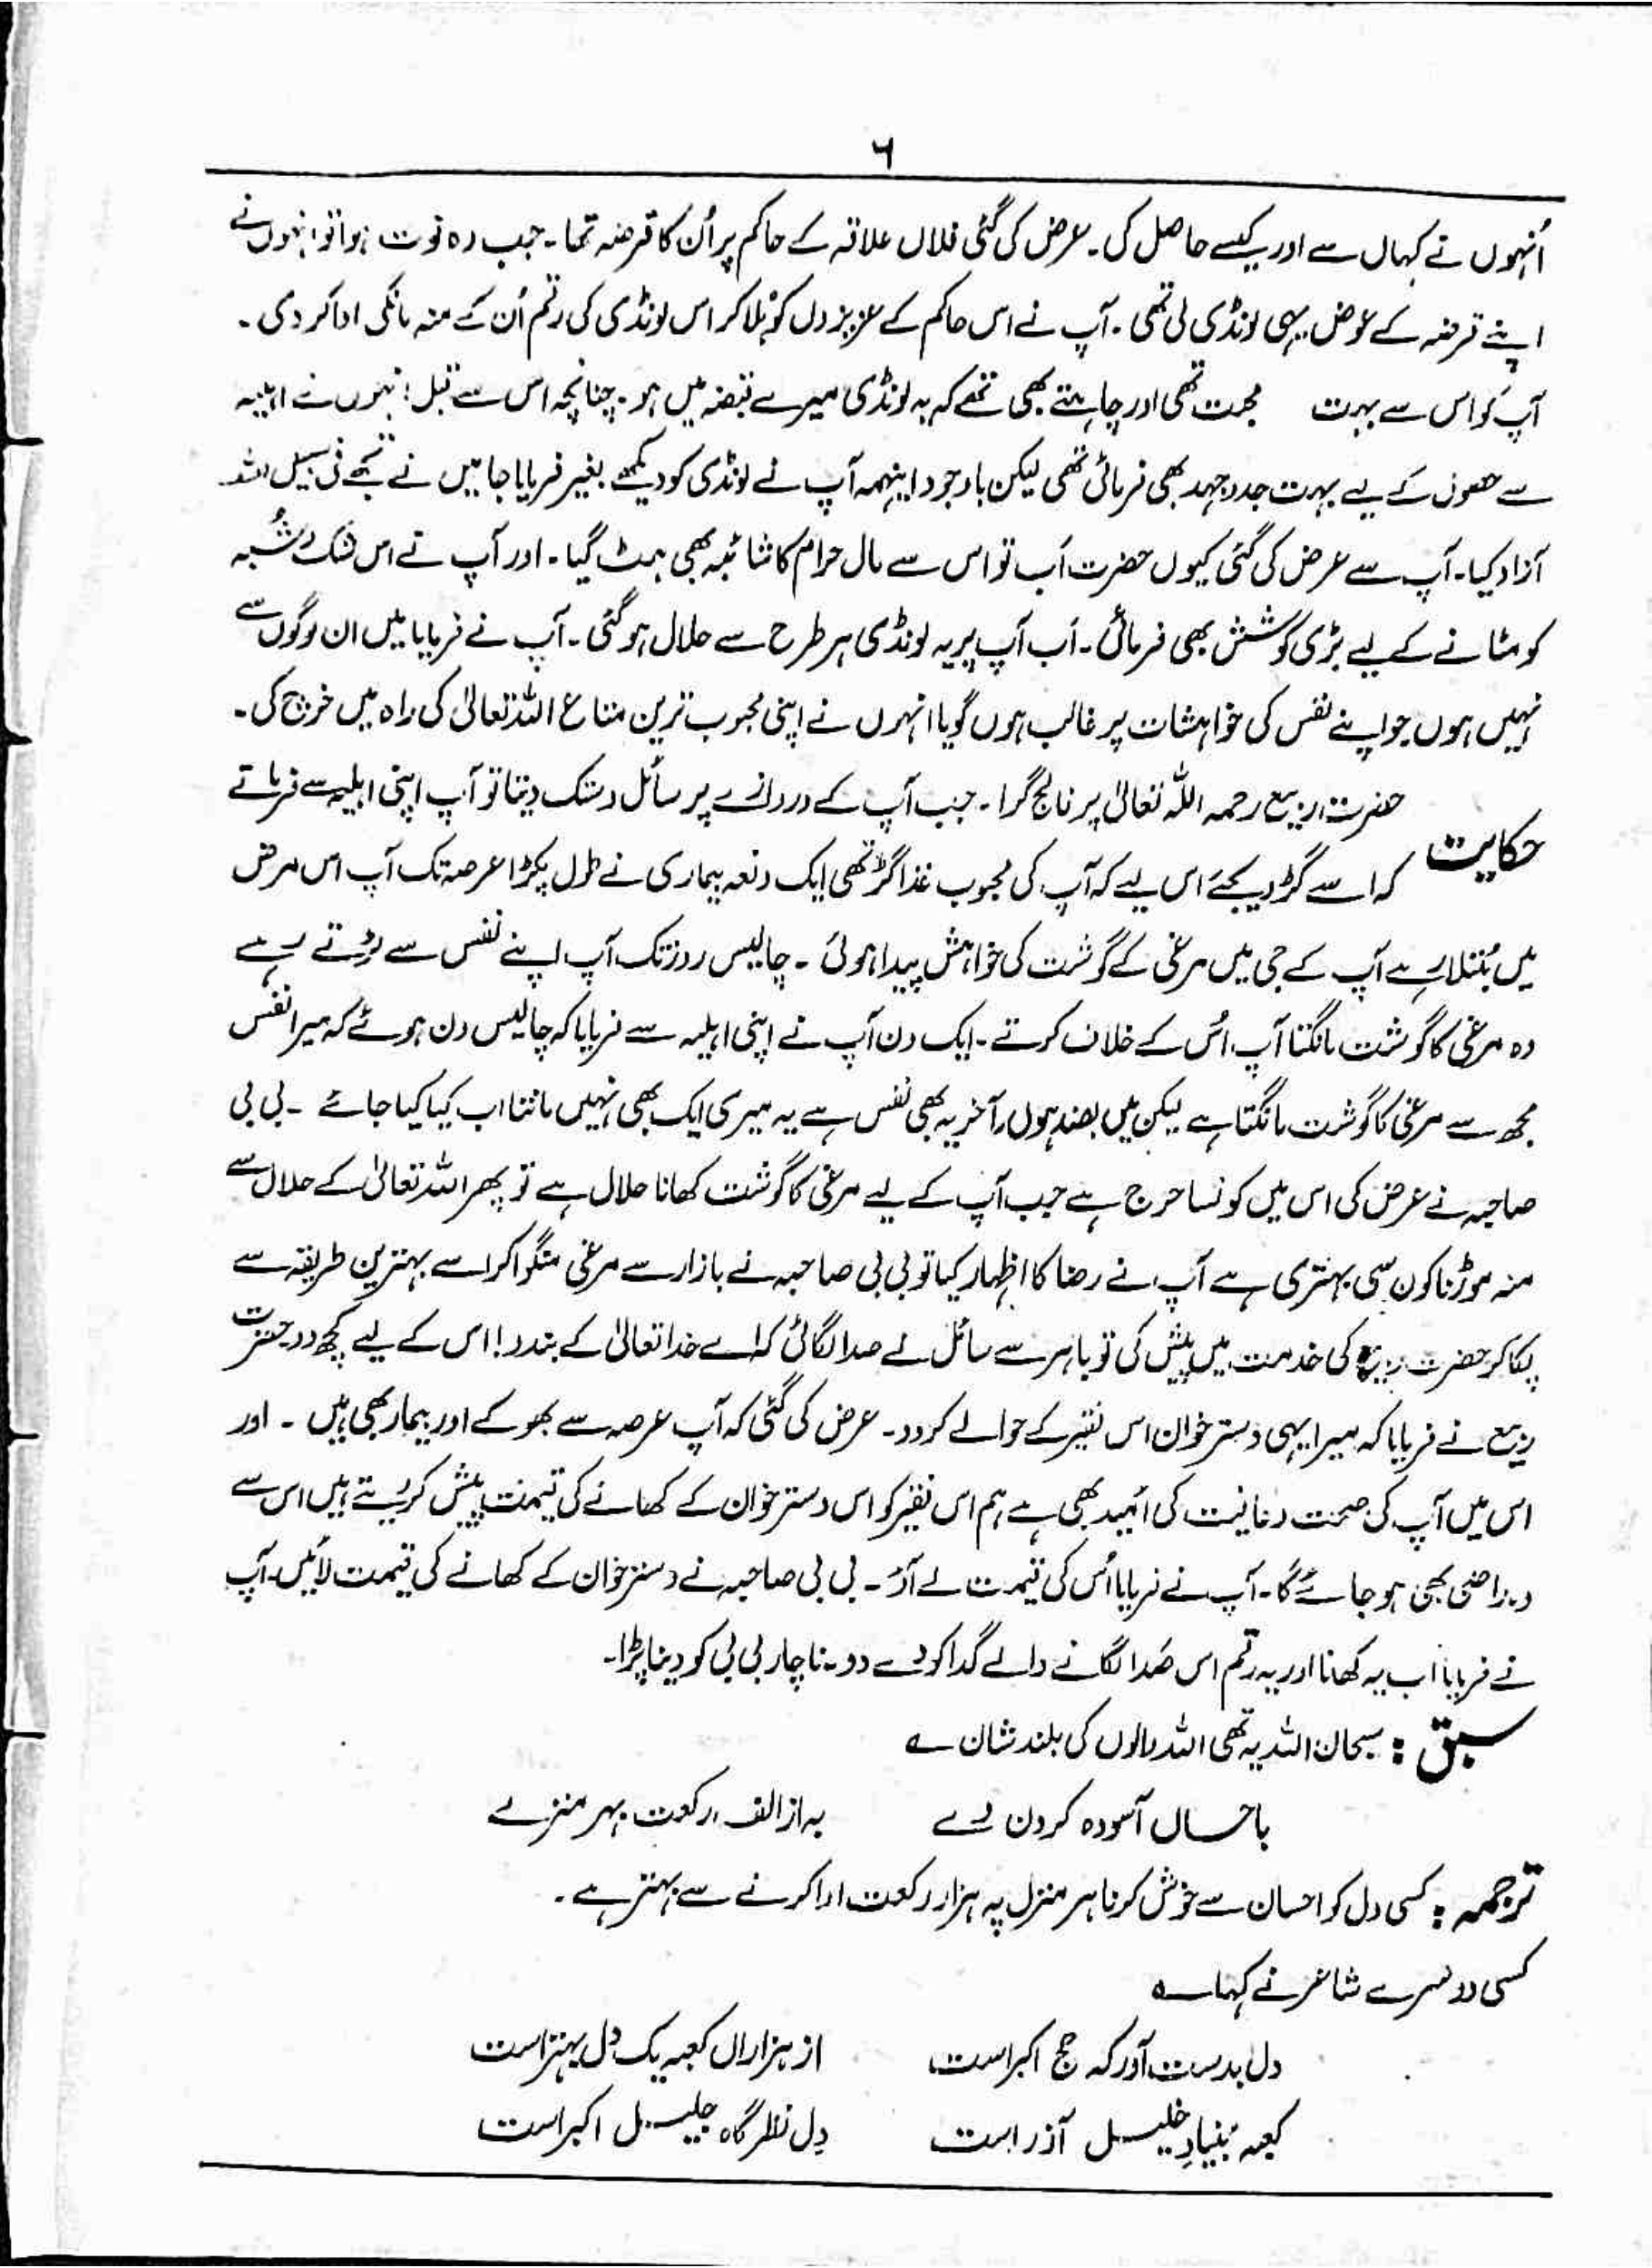 ۶
اُنہوں نے کہاں سے اور کیسے حاصل کی۔ عرض کی گئی فلاں علاقہ کے حاکم پر اُن کا قرضہ تھا۔ جب وہ فوت ہوا تو انہوں نے
اپنے قرضہ کے عوض یہی لونڈی لی تھی۔ آپ نے اس حاکم کے عزیزوں کو بُلا کر اس لونڈی کی رقم اُن کے منہ مانگی ادا کر دی۔
آپ کو اس سے بہت محبت تھی اور چاہتے بھی تھے کہ یہ لونڈی میرے قبضہ میں ہو۔ چنانچہ اس سے قبل انہوں نے اہلیہ
سے حصول کے لیے بہت جدوجہد بھی فرمائی تھی لیکن باوجود اینہمہ آپ نے لونڈی کو دیکھے بغیر فرمایا جا میں نے تجھے فی سبیل اللہ
آزاد کیا۔ آپ سے عرض کی گئی کیوں حضرت اَب تو اس سے مال حرام کا شائبہ بھی ہٹ گیا۔ اور آپ نے اس شک و شُبہ
کو مٹانے کے لیے بڑی کوشش بھی فرمائی۔ اَب آپ پر یہ لونڈی ہر طرح سے حلال ہو گئی۔ آپ نے فرمایا میں ان لوگوں سے
نہیں ہوں جو اپنے نفس کی خواہشات پر غالب ہوں گویا انہوں نے اپنی محبوب ترین متاع اللہ تعالیٰ کی راہ میں خرچ کی۔
حکایت حضرت ربیع رحمہ اللہ تعالیٰ پر فالج گرا۔ جب آپ کے دروازے پر سائل دستک دیتا تو آپ اپنی اہلیہ سے فرماتے
کہ اسے گڑ دیجئے اس لیے کہ آپ کی محبوب غذا گڑ تھی ایک دفعہ بیماری نے طول پکڑا عرصہ تک آپ اس مرض
میں مُبتلا رہے آپ کے جی میں مرغی کے گوشت کی خواہش پیدا ہوئی۔ چالیس روز تک آپ اپنے نفس سے لڑتے رہے
وہ مرغی کا گوشت مانگتا آپ اُس کے خلاف کرتے۔ ایک دن آپ نے اپنی اہلیہ سے فرمایا کہ چالیس دن ہوئے کہ میرا نفس
مجھ سے مرغی کا گوشت مانگتا ہے لیکن میں بضد ہوں، آخر یہ بھی نفس ہے یہ میری ایک بھی نہیں مانتا اب کیا کیا جائے۔ بی بی
صاحبہ نے عرض کی اس میں کونسا حرج ہے جب آپ کے لیے مرغی کا گوشت کھانا حلال ہے تو پھر اللہ تعالیٰ کے حلال سے
منہ موڑنا کون سی بہتری ہے آپ نے رضا کا اظہار کیا تو بی بی صاحبہ نے بازار سے مرغی منگوا کر اسے بہترین طریقہ سے
پکا کر حضرت ربیع کی خدمت میں پیش کی تو باہر سے سائل نے صدا لگائی کہ اے خدا تعالیٰ کے بندو! اس کے لیے کچھ دو حضرت
ربیع نے فرمایا کہ میرا یہی دسترخوان اس فقیر کے حوالے کر دو۔ عرض کی گئی کہ آپ عرصہ سے بھوکے اور بیمار بھی ہیں۔ اور
اس میں آپ کی صحت و عافیت کی اُمید بھی ہے ہم اس فقیر کو اس دسترخوان کے کھانے کی قیمت پیش کر دیتے ہیں اس سے
وہ راضی بھی ہو جائے گا۔ آپ نے فرمایا اُس کی قیمت لے آؤ۔ بی بی صاحبہ نے دسترخوان کے کھانے کی قیمت لائیں۔ آپ
نے فرمایا اب یہ کھانا اور یہ رقم اس صَدا لگانے والے گدا کو دے دو۔ ناچار بی بی کو دینا پڑا۔
سبق : سبحان اللہ یہ تھی اللہ والوں کی بلند شان ؎
باحساں آسودہ کردن دلے بہ از الف رکعت بہر منزلے
ترجمہ : کسی دل کو احسان سے خوش کرنا ہر منزل پہ ہزار رکعت ادا کرنے سے بہتر ہے۔
کسی دوسرے شاعر نے کہا ؎
دل بدست آور کہ حج اکبر است از ہزاراں کعبہ یک دل بہتر است
کعبہ بُنیادِ خلیل آذر است دِل نظر گاہ جلیل اکبر است